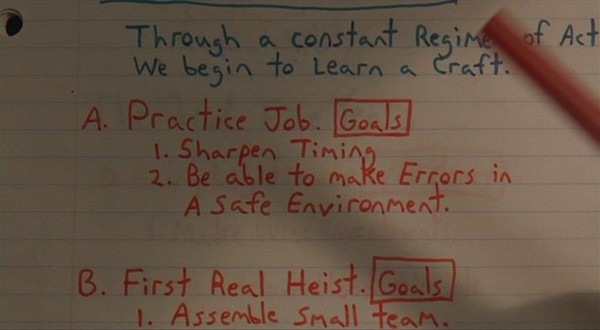 Through a constant Regime of Act
We begin to Learn a Craft.
A. Practice Job. Goals
1. Sharpen Timing
2. Be able to make Errors in
A Safe Environment.
B. First Real Heist. Goals
1. Assemble Small team.